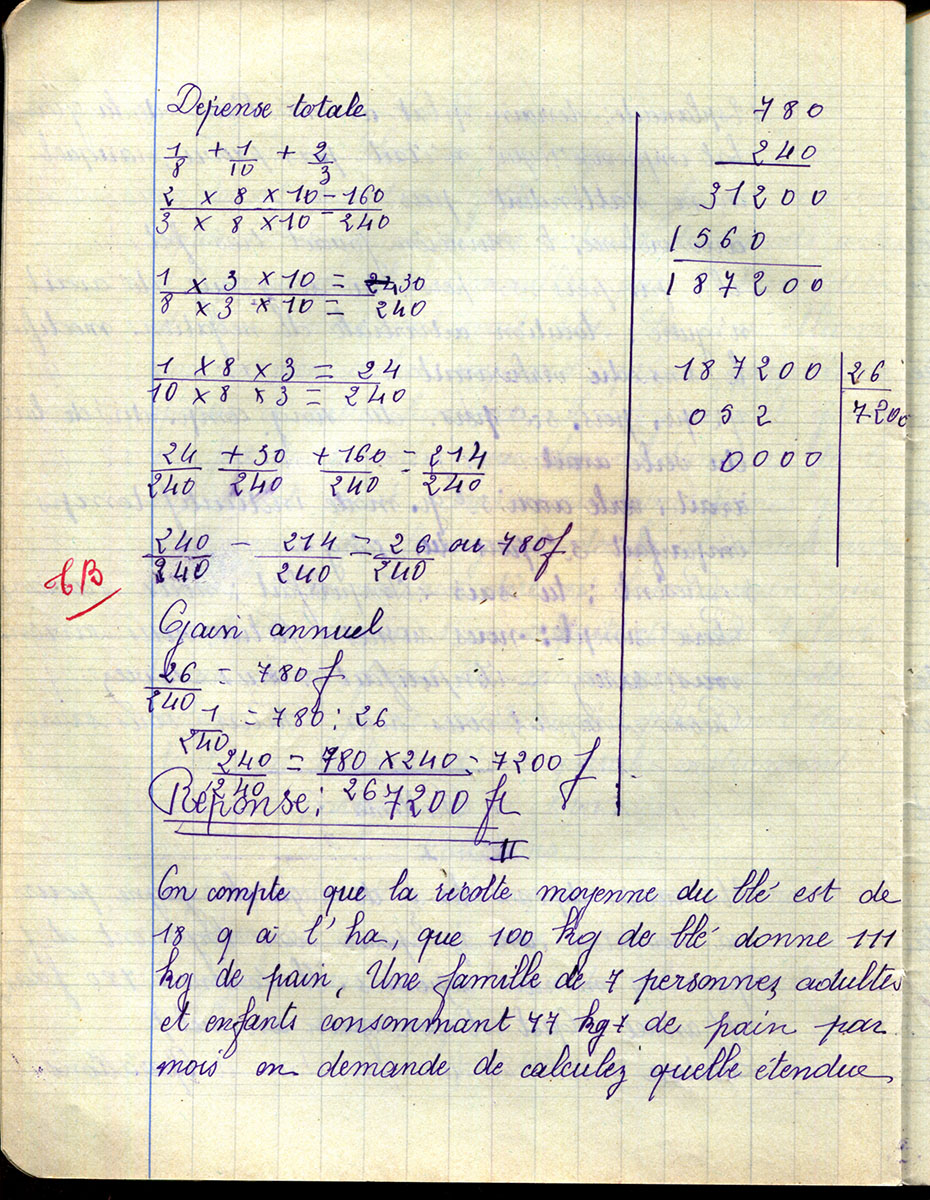 Dépense totale
1/8 + 1/10 + 2/3
2 x 8 x 10 = 160
3 x 8 x 10 = 240
1 x 3 x 10 = 30
8 x 3 x 10 = 240
1 x 8 x 3 = 24
10 x 8 x 3 = 240
24/240 + 30/240 + 160/240 = 214/240
240/240 - 214/240 = 26/240 ou 780f
tB
Gain annuel
26/240 = 780 f
1/240 = 780 : 26
240/240 = 780 x 240/26 = 7200 f
Réponse : 7200 f
780
240
31200
1560
187200
187200 | 26
052 | 7200
0000
II
On compte que la récolte moyenne du blé est de
18 q à l'ha, que 100 kg de blé donne 111
kg de pain. Une famille de 7 personnes adultes
et enfants consommant 77 kg 7 de pain par
mois on demande de calculez quelle étendue